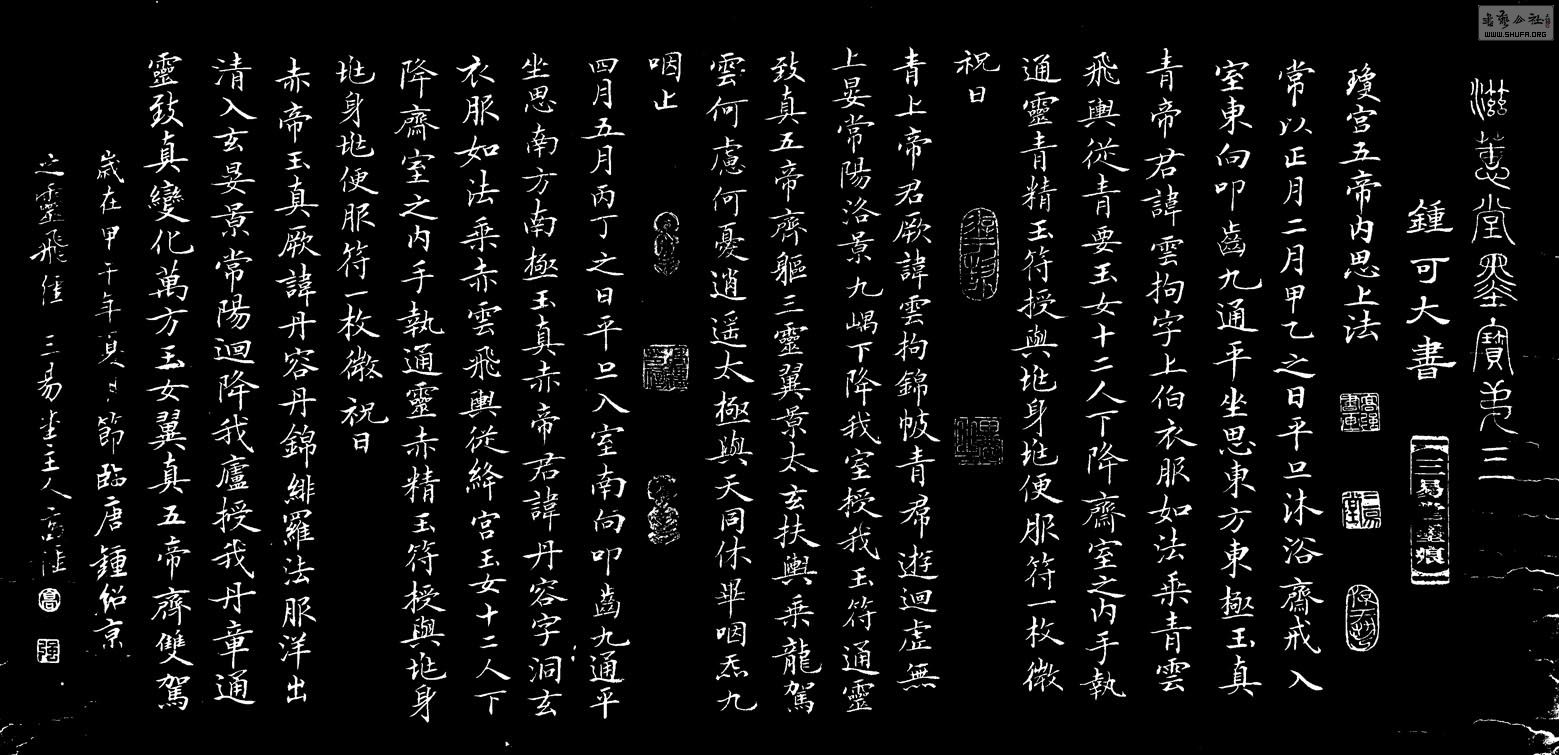 滋蕙堂墨寶第三
鍾可大書
瓊宮五帝内思上法
常以正月二月甲乙之日平旦沐浴齋戒入
室東向叩齒九通平坐思東方東極玉真
青帝君諱雲拘字上伯衣服如法乘青雲
飛輿從青要玉女十二人下降齋室之内手執
通靈青精玉符授與𠛅身𠛅便服符一枚微
祝曰
青上帝君厥諱雲拘錦帔青帬遊迴虚無
上晏常陽洛景九嵎下降我室授我玉符通靈
致真五帝齊軀三靈翼景太玄扶輿乘龍駕
雲何慮何憂逍遥太極與天同休畢咽炁九
咽止
四月五月丙丁之日平旦入室南向叩齒九通平
坐思南方南極玉真赤帝君諱丹容字洞玄
衣服如法乘赤雲飛輿從絳宫玉女十二人下
降齋室之内手執通靈赤精玉符授與𠛅身
𠛅身𠛅便服符一枚微祝曰
赤帝玉真厥諱丹容丹錦緋羅法服洋出
清入玄晏景常陽迴降我廬授我丹章通
靈致真變化萬方玉女翼真五帝齊雙駕
歲在甲午年夏日節臨唐鍾紹京
之靈飛經 三易堂主人高強
書艺公社
WWW.SHUFA.ORG